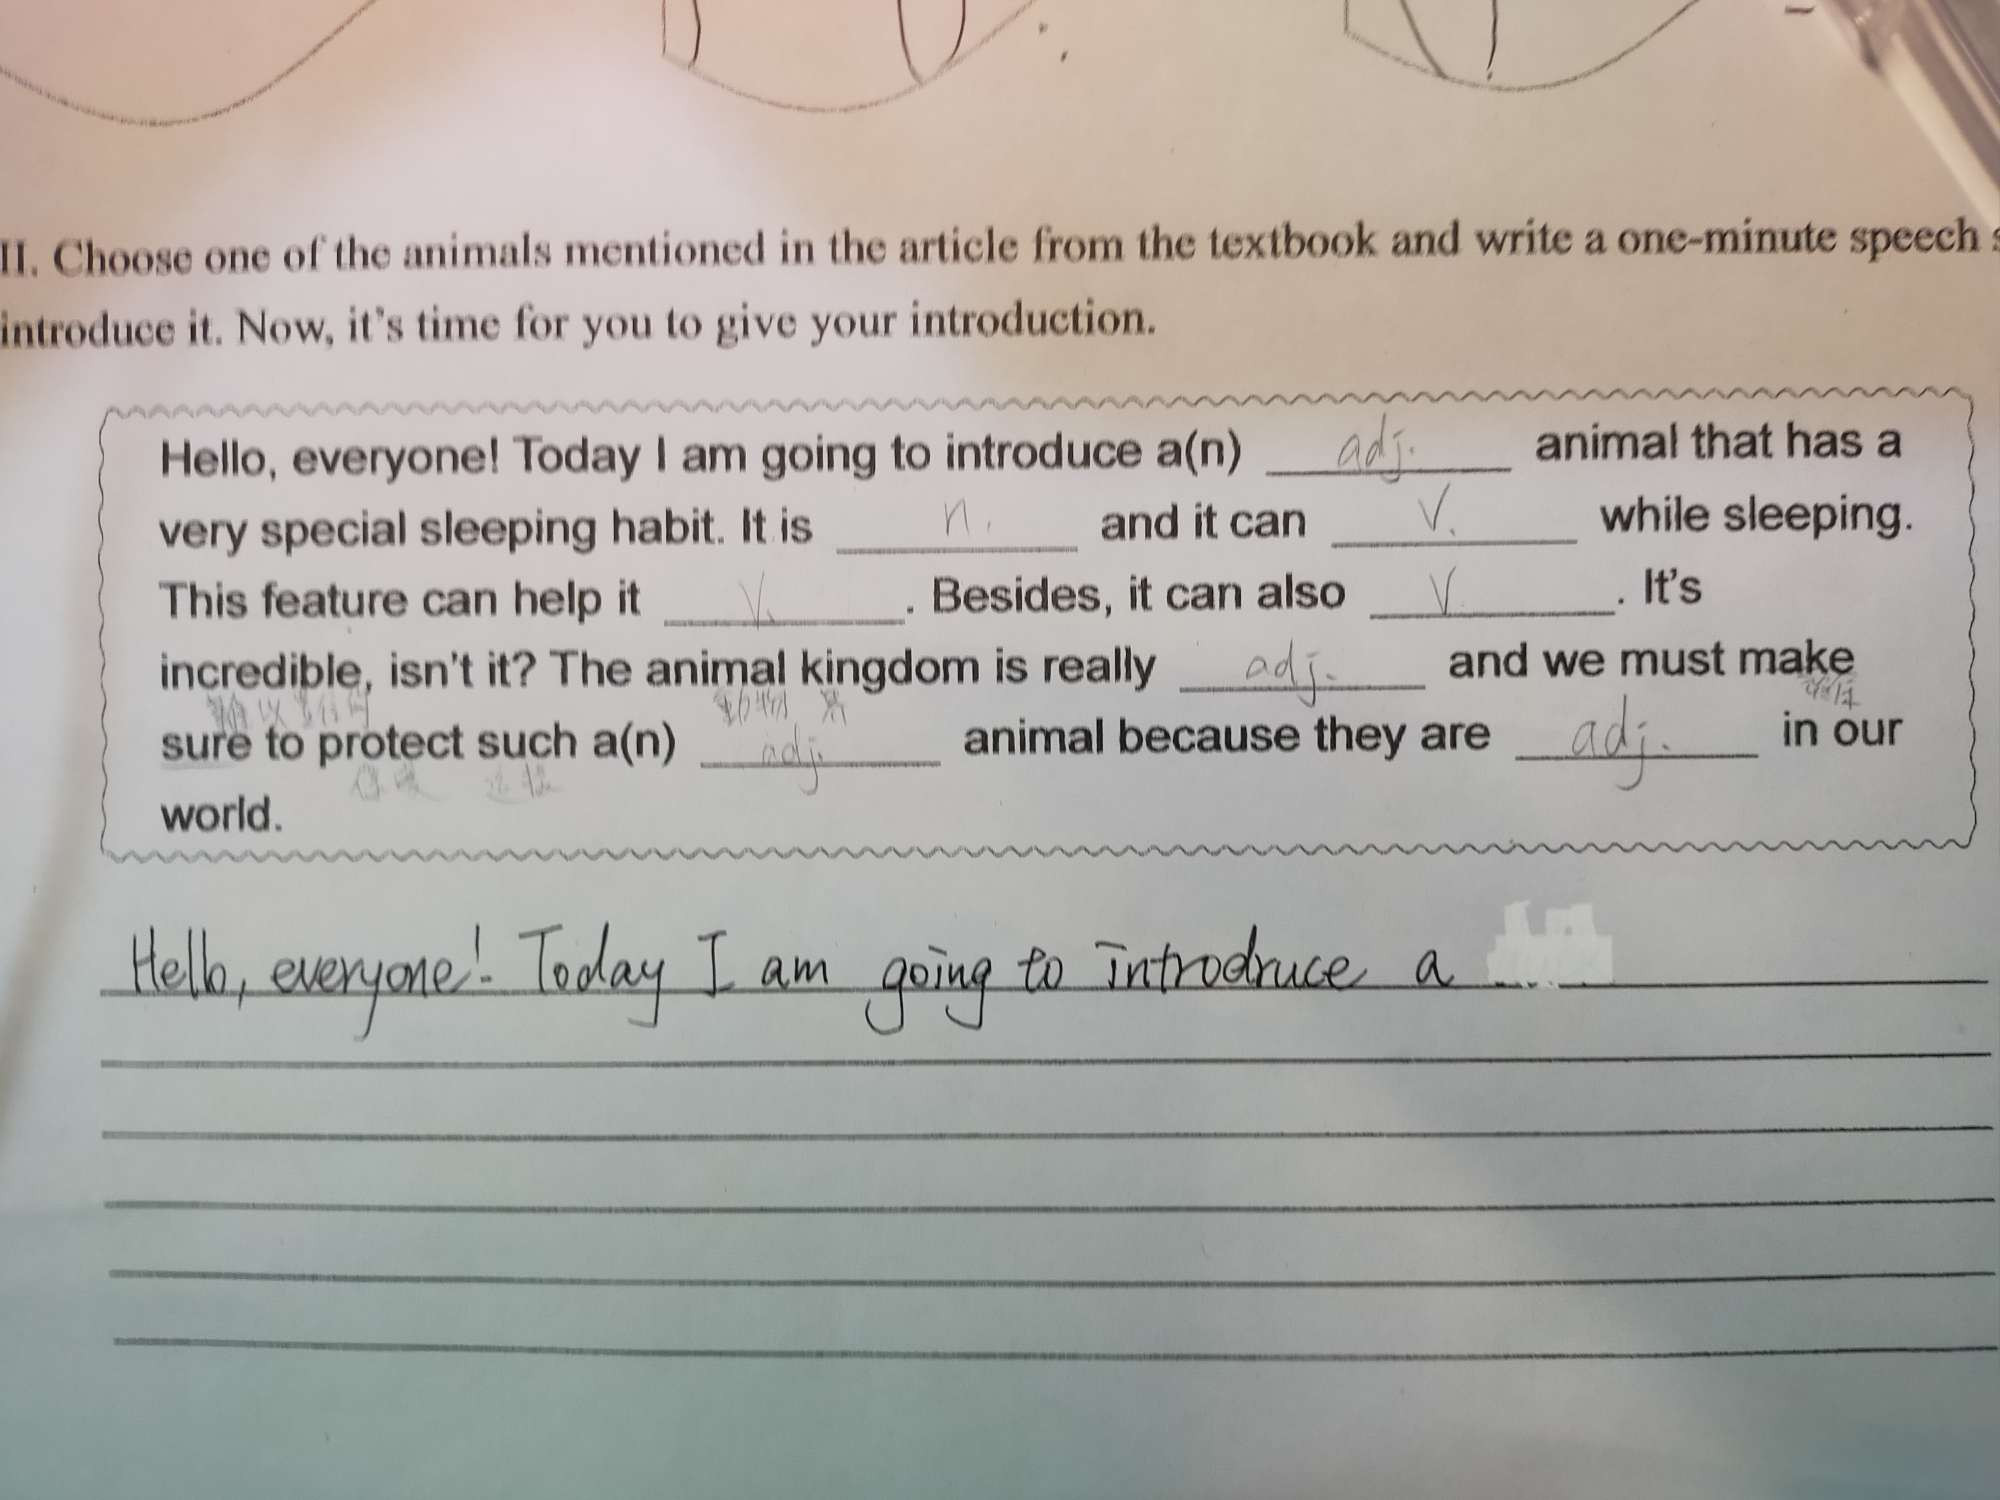 II. Choose one of the animals mentioned in the article from the textbook and write a one-minute speech
introduce it. Now, it's time for you to give your introduction.
Hello, everyone! Today I am going to introduce a(n) adj. animal that has a
very special sleeping habit. It is n. and it can V. while sleeping.
This feature can help it V. . Besides, it can also V . It's
incredible, isn't it? The animal kingdom is really adj. and we must make
動物 界
sure to protect such a(n) adj. animal because they are adj. in our
保護
world.
Hello, everyone! Today I am going to introdruce a